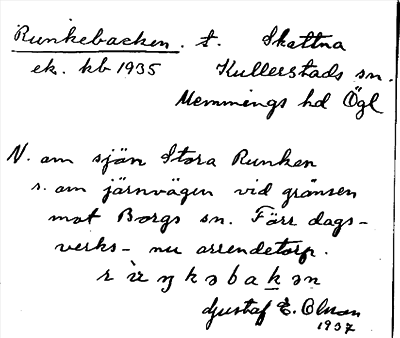 Runkebacken. t. Skattna
ek. kb 1935 Kullerstads sn.
Memmings hd Ögl
N. om sjön Stora Runken
s. om järnvägen vid gränsen
mot Borgs sn. Förr dags-
verks- nu arrendetorp.
r ùŋkəbakən
Gustaf E. Olsson
1937